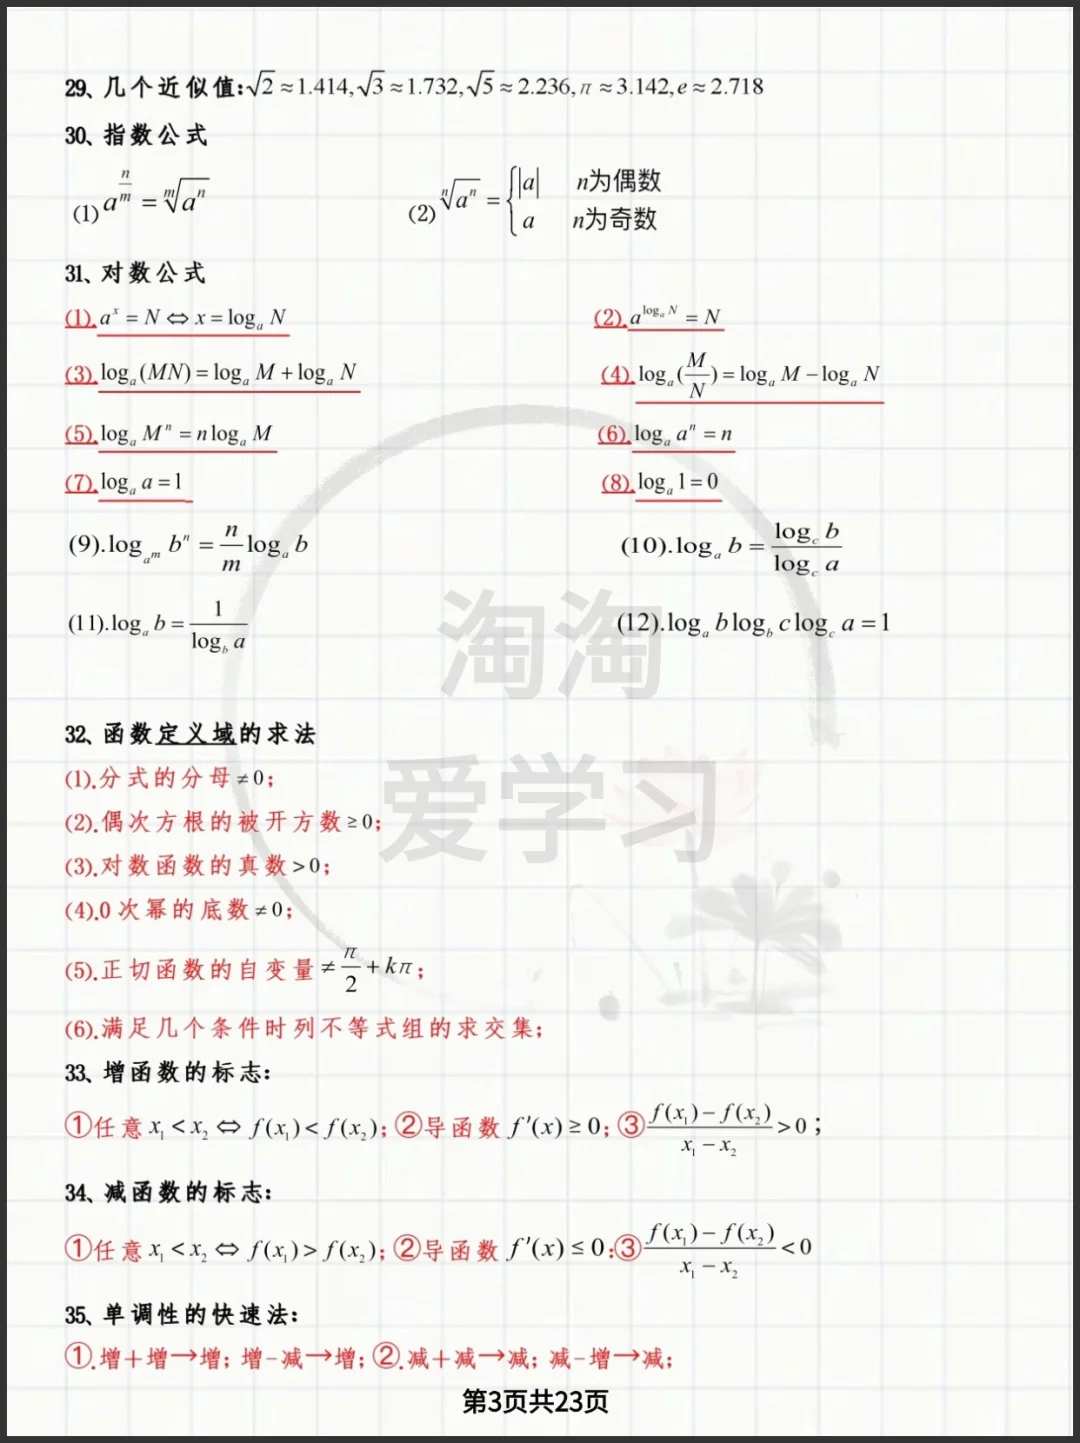 29、几个近似值:√2≈1.414,√3≈1.732,√5≈2.236,π≈3.142,e≈2.718
30、指数公式
(1) a^(n/m) = ᵐ√(aⁿ) (2) ⁿ√(aⁿ) = { |a| n为偶数
a n为奇数
31、对数公式
(1).aˣ = N ⇔ x = logₐ N (2).a^(logₐ N) = N
(3).logₐ(MN) = logₐ M + logₐ N (4).logₐ(M/N) = logₐ M − logₐ N
(5).logₐ Mⁿ = n logₐ M (6).logₐ aⁿ = n
(7).logₐ a = 1 (8).logₐ 1 = 0
(9).log_(a^m) bⁿ = n/m logₐ b (10).logₐ b = log_c b / log_c a
(11).logₐ b = 1 / log_b a (12).logₐ b log_b c log_c a = 1
淘淘
爱学习
32、函数定义域的求法
(1).分式的分母≠0;
(2).偶次方根的被开方数≥0;
(3).对数函数的真数>0;
(4).0次幂的底数≠0;
(5).正切函数的自变量≠π/2+kπ;
(6).满足几个条件时列不等式组的求交集;
33、增函数的标志:
①任意 x₁ < x₂ ⇔ f(x₁) < f(x₂);②导函数 f′(x) ≥ 0;③(f(x₁) − f(x₂))/(x₁ − x₂) > 0;
34、减函数的标志:
①任意 x₁ < x₂ ⇔ f(x₁) > f(x₂);②导函数 f′(x) ≤ 0;③(f(x₁) − f(x₂))/(x₁ − x₂) < 0
35、单调性的快速法:
①.增+增→增;增-减→增;②.减+减→减;减-增→减;
第3页共23页